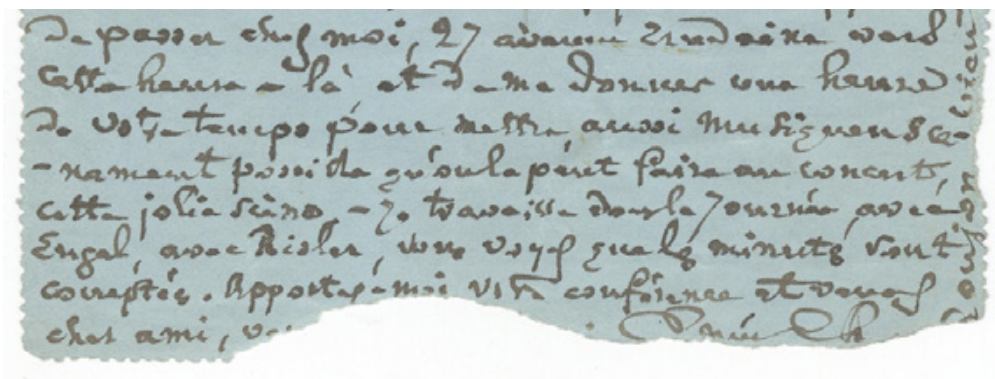 De passer chez moi, 27 avenue vers
cette heure-là et de me donner une heure
De votre temps pour mettre aussi musiquen sce-
-nement possible qu'on le peut faire au concert,
cette jolie scène, - Je travaille dans la journée avec
Engel, avec Risler, vous voyez que les minutes sont
comptées. Apportez-moi votre conférence et venez
cher ami,